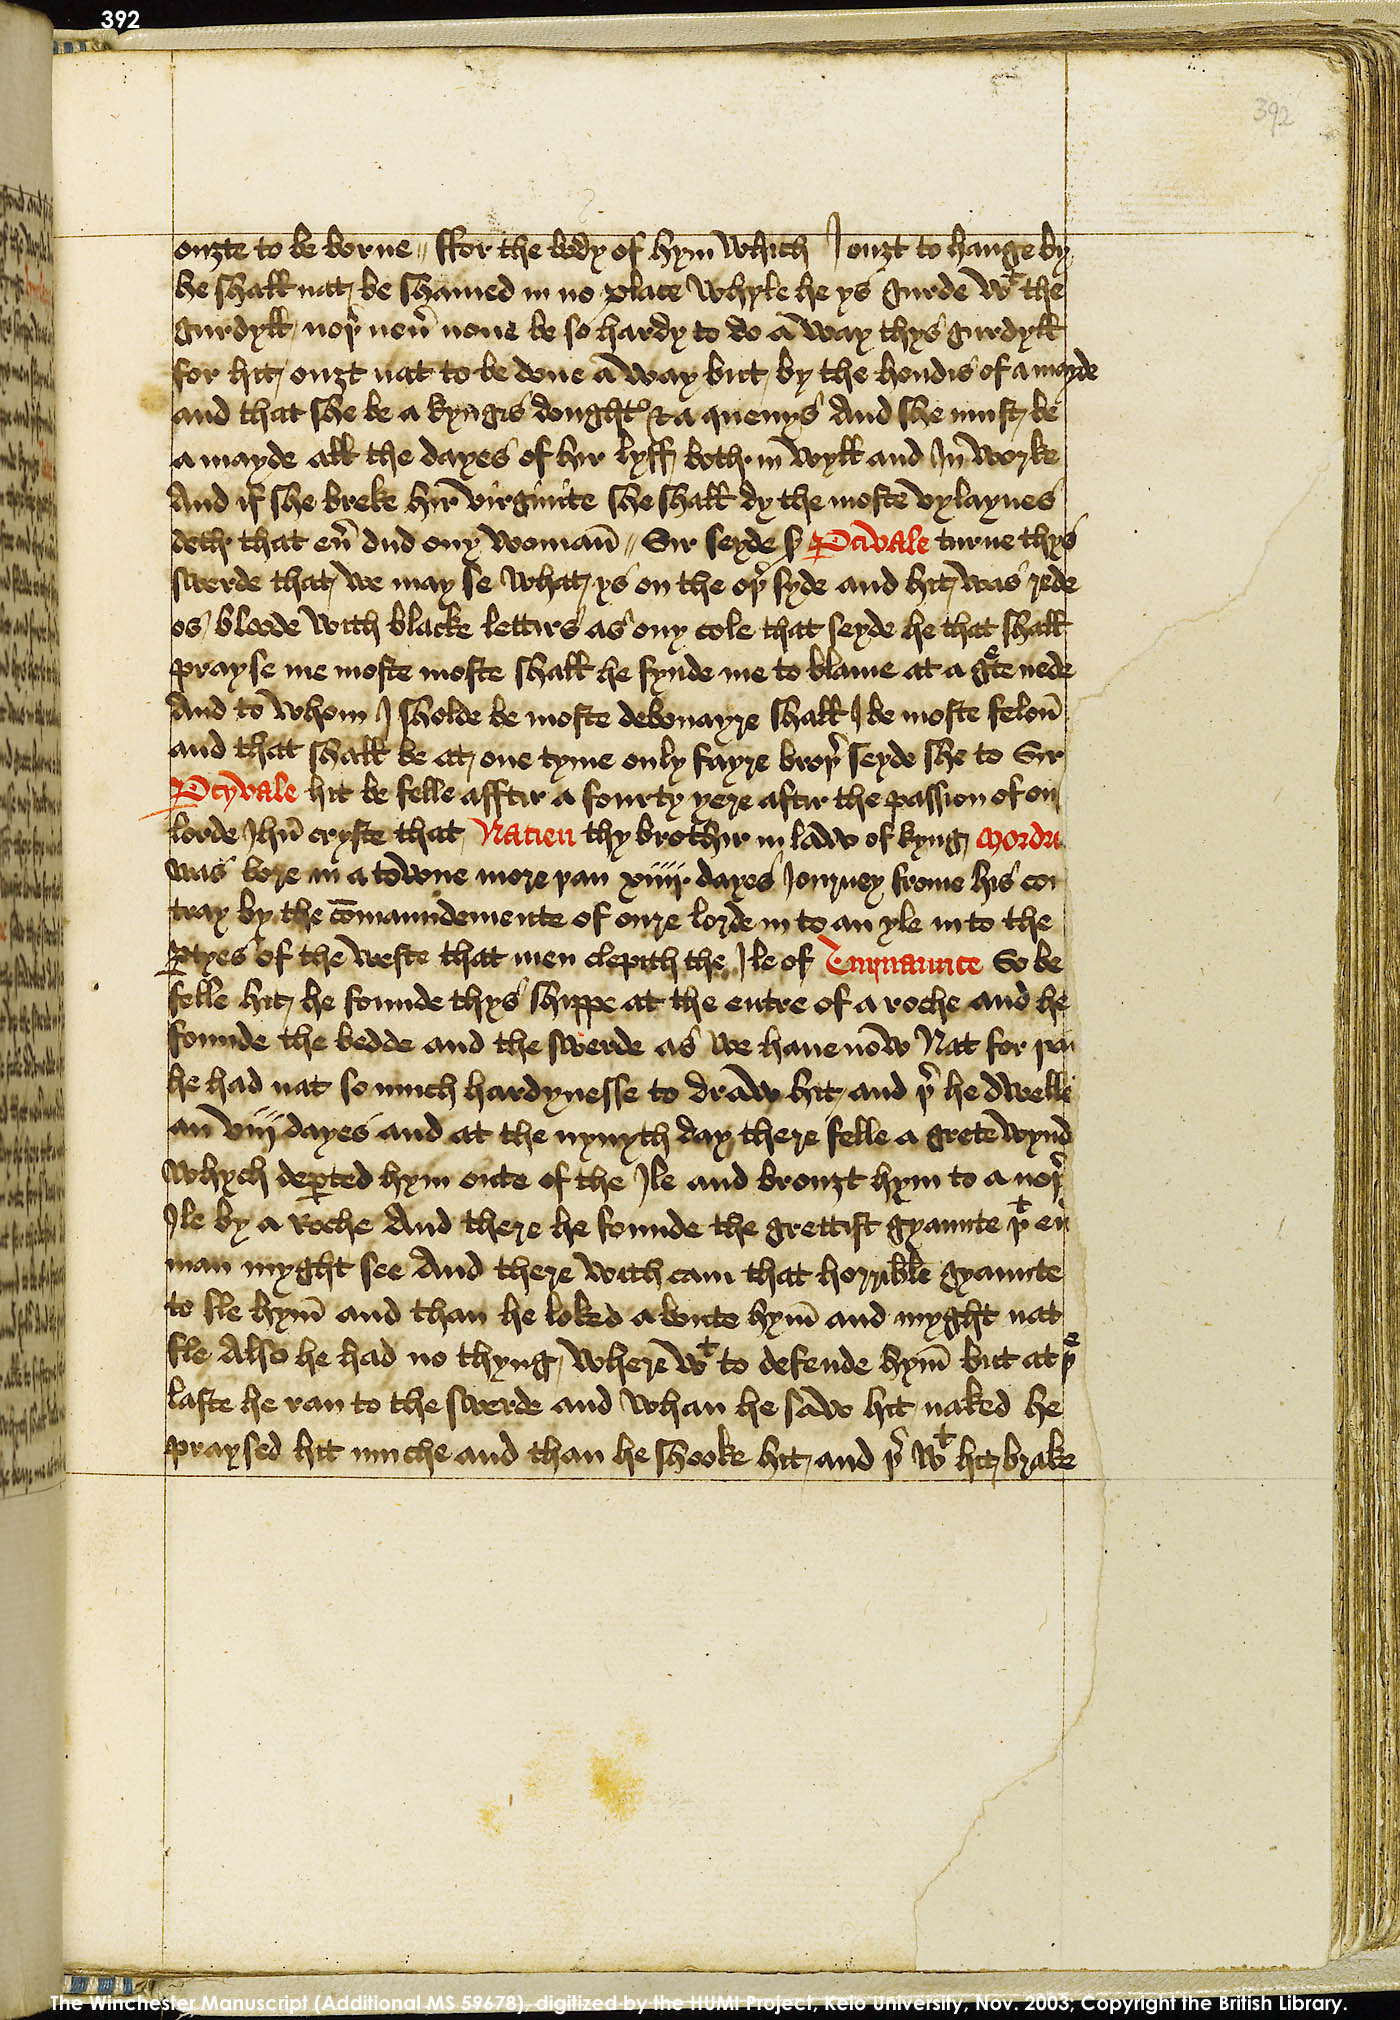 392
392
ouȝte to be borne // ffor the body of hym which I ouȝt to hange by
he shall nat be shamed in no place whyle he ys gurde wt the
gurdyll / noþr neuer none be so hardy to do a way thys gurdyll
for hit ouȝt nat to be done a way but by the hondis of a mayde
and that she be a kyngis doughtr & a quenys And she must be
a mayde all the dayes of hir lyff both in wyll and In worke
And if she breke hir virginite she shall dy the moste vylaynes
deth that eur dud ony woman̄ // Sir seyde sr Pcivale turne thys
swerde that we may se what ys on the oþr syde and hit was rede
os bloode with blacke lettirs as ony cole that seyde he that shall
prayse me moste moste shall he fynde me to blame at a grete nede
And to whom I sholde be moste debonayre shall I be moste felon̄
and that shall be at one tyme only fayre broþr seyde she to Sir
Pcyvale hit be felle afftir a fourty yere aftir the passion of ou
lorde Ihū cryste that Nacien thy brothir in law of kyng Mordr
was bore in a towne more þan xiiij dayes Iourney frome his con
tray by the cōmaundemente of oure lorde in to an yle in to the
ꝑtyes of the weste that men clepith the Ile of Turnaunce So be
felle hit he founde thys shippe at the entre of a roche and he
founde the bedde and the swerde as we haue now Nat for þan
he had nat so much hardynesse to draw hit and þr he dwelle
an viij dayes and at the nynyth day there felle a grete wynd
whych deꝑted hym oute of the Ile and brouȝt hym to a noþr
Ile by a roche And there he founde the grettist gyaunte þt eu
man myght see And there with cam that horrible gyaunte
to sle hym̄ and than he loked a boute hym̄ and myght nat
fle Also he had no thyng where wt to defende hym̄ but at þe
laste he ran to the swerde and whan he saw hit naked he
praysed hit muche and than he shooke hit and þr wt hit brake
The Winchester Manuscript (Additional MS 59678), digitized by the HUMI Project, Keio University, Nov. 2003; Copyright the British Library.